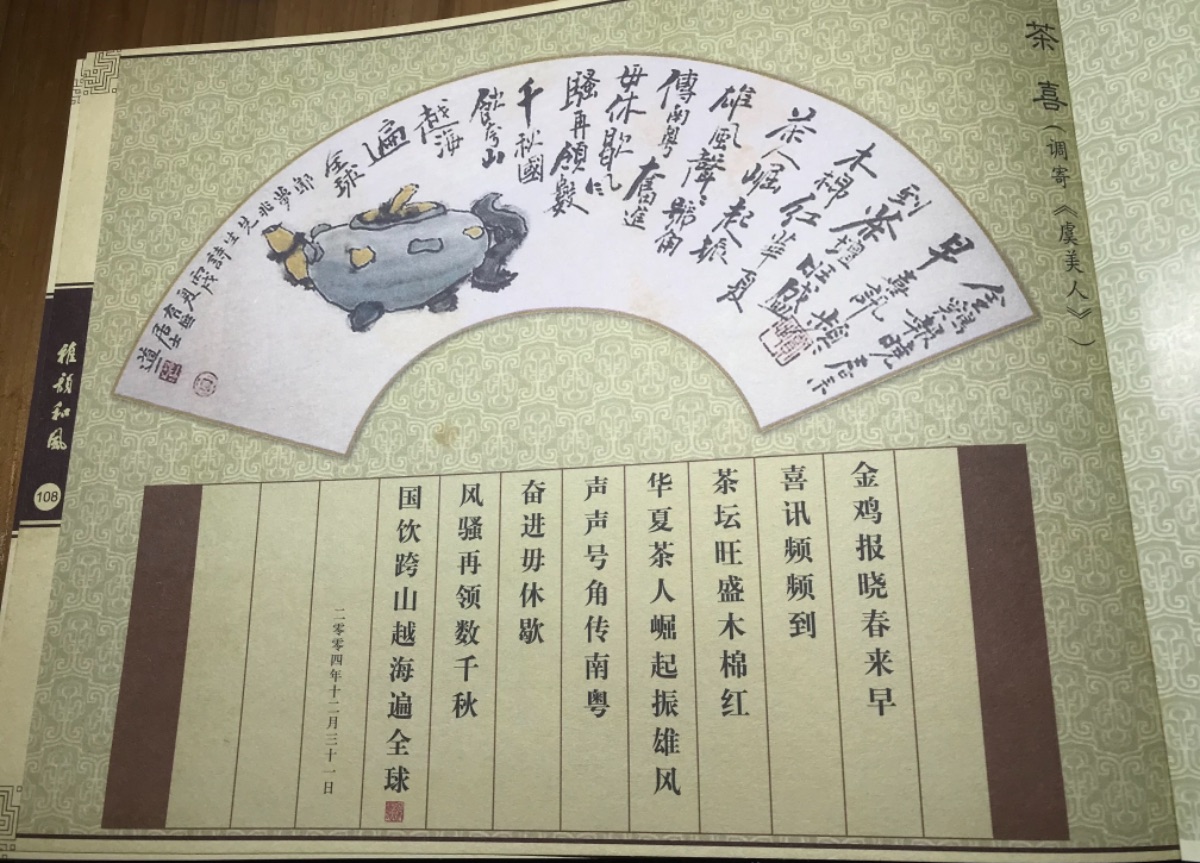 茶喜（调寄《虞美人》）
早
到茶壇旺盛
木棉红華夏
茶人崛起振
雄風聲聲號角
傳南粤奮進
毋休歇风
騷再領數
千秋國
飲夸山
越海
遍
全球
金鸡报晓春来早
喜讯频频到
茶坛旺盛木棉红
华夏茶人崛起振雄风
声声号角传南粤
奋进毋休歇
风骚再领数千秋
国饮跨山越海遍全球
二零零四年十二月三十一日
雅韻和風
108